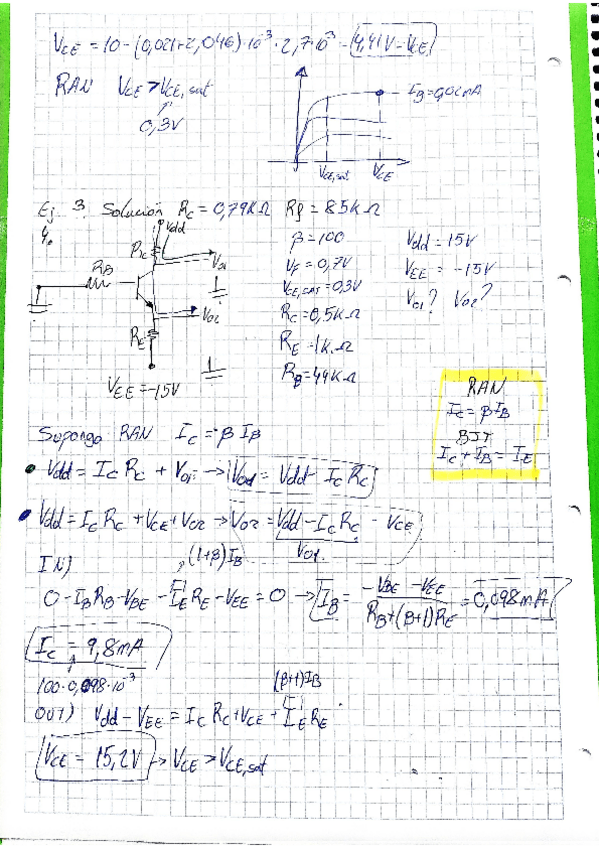 V_CE = 10 - (0,021 + 2,046)·10⁻³ · 2,7·10³ = 4,41V = V_CE
RAN V_CE > V_CE,sat
0,3V
I_B = 0,02mA
V_CE,sat V_CE
Ej 3. Solución R_C = 0,79KΩ R_B = 85KΩ
4.
Vdd
R_C
V01
R_B
V02
R_E
V_EE = -15V
β = 100
V_F = 0,7V
V_CE,SAT = 0,3V
R_C = 0,5KΩ
R_E = 1KΩ
R_B = 44KΩ
Vdd = 15V
V_EE = -15V
V01? V02?
RAN
I_C = βI_B
BJT
I_C + I_B = I_E
Supongo RAN I_C = β I_B
• Vdd = I_C R_C + V01 → V01 = Vdd - I_C R_C
• Vdd = I_C R_C + V_CE + V02 → V02 = Vdd - I_C R_C - V_CE
V01
IN) (1+β)I_B
0 - I_B R_B - V_BE - I_E R_E - V_EE = 0 → I_B = (-V_BE - V_EE) / (R_B + (β+1)R_E) = 0,098mA
I_C = 9,8mA
100·0,098·10⁻³
(β+1)I_B
OUT) Vdd - V_EE = I_C R_C + V_CE + I_E R_E
V_CE = 15,2V → V_CE > V_CE,sat